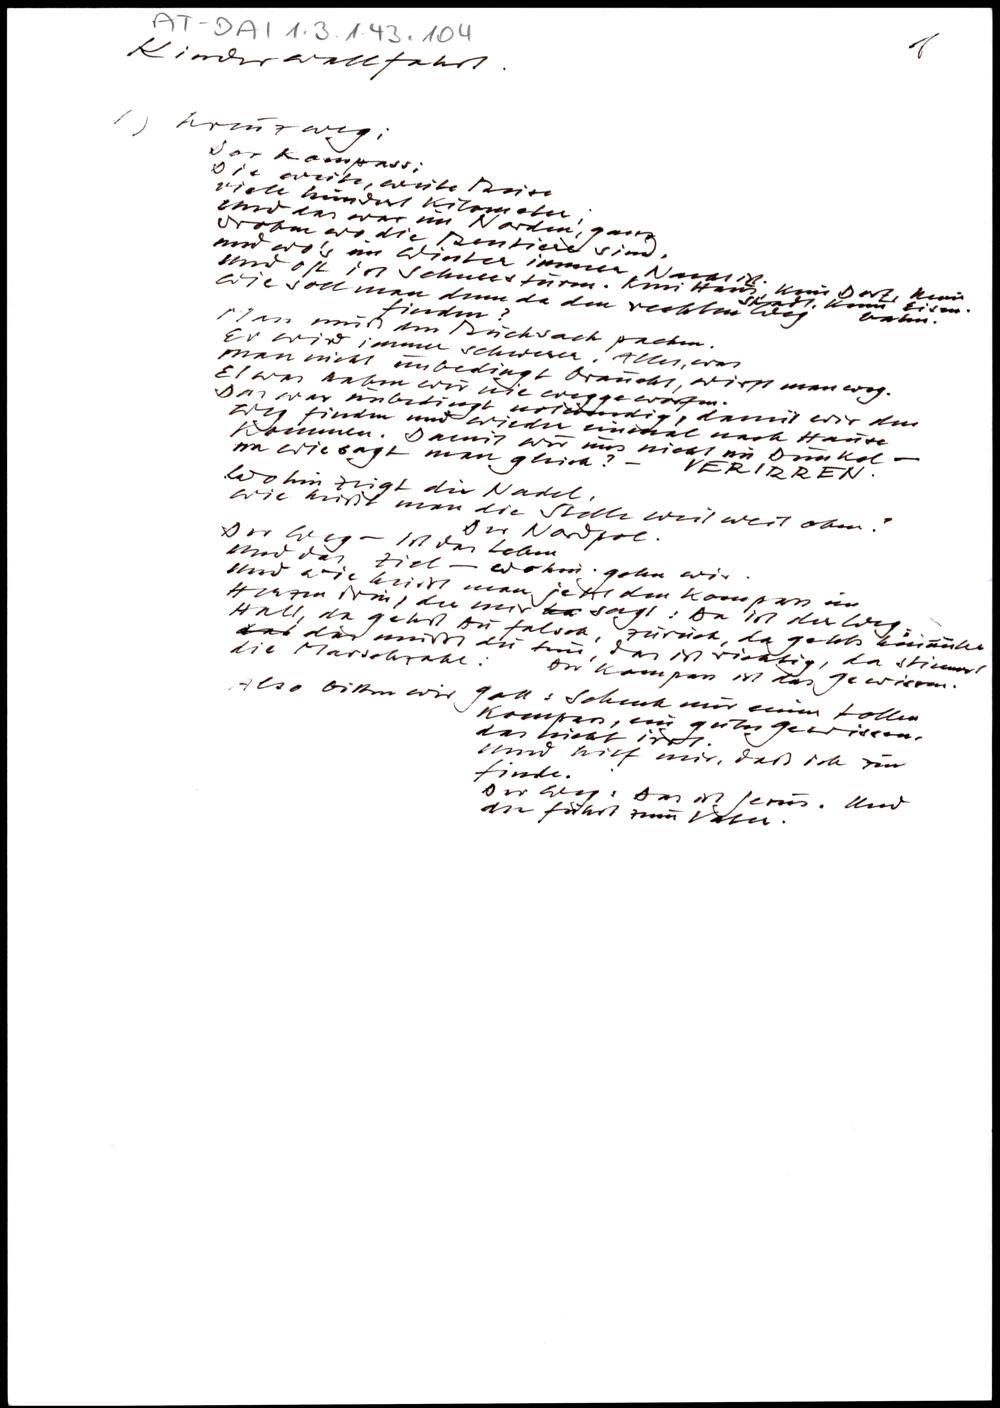 AT-DAI 1.3.1.43.104
Kinderwallfahrt.
1) Kreuzweg:
Der Kompass:
Die weite, weite Reise
viele hundert Kilometer;
und das war im Norden, ganz
droben wo die Rentiere sind,
und wo's im Winter immer Nacht ist.
Und oft ist Schneesturm. Kein Haus, kein Dorf, keine
Stadt, keine Eisen-
bahn.
Wie soll man denn da den rechten Weg
finden?
Man muß den Rucksack packen.
Er wird immer schwerer. Alles, was
man nicht unbedingt braucht, wirft man weg.
Etwas haben wir nie weggeworfen.
Das war unbedingt notwendig, damit wir den
Weg finden und wieder einmal nach Hause
kommen. Damit wir uns nicht im Dunkel –
na wie sagt man gleich? – VERIRREN.
Wohin zeigt die Nadel,
wie heißt man die Stelle weit weit oben?
Der Nordpol.
Der Weg – ist das Leben
und das Ziel – wohin gehn wir.
Und wie heißt man jetzt den Kompass im
Herzen drin, der mir sagt: Da ist der Weg,
Halt, da gehst du falsch, zurück, da gehts hinüber
das das mußt du tun, das ist richtig, da stimmt
die Marschzahl: Der Kompass ist das Gewissen.
Also bitten wir Gott: Schenk mir einen tollen
Kompass, ein gutes Gewissen,
das nicht irrt.
Und hilf mir, daß ich
finde.
Der Weg: Das ist Jesus. Und
der führt zum Vater.